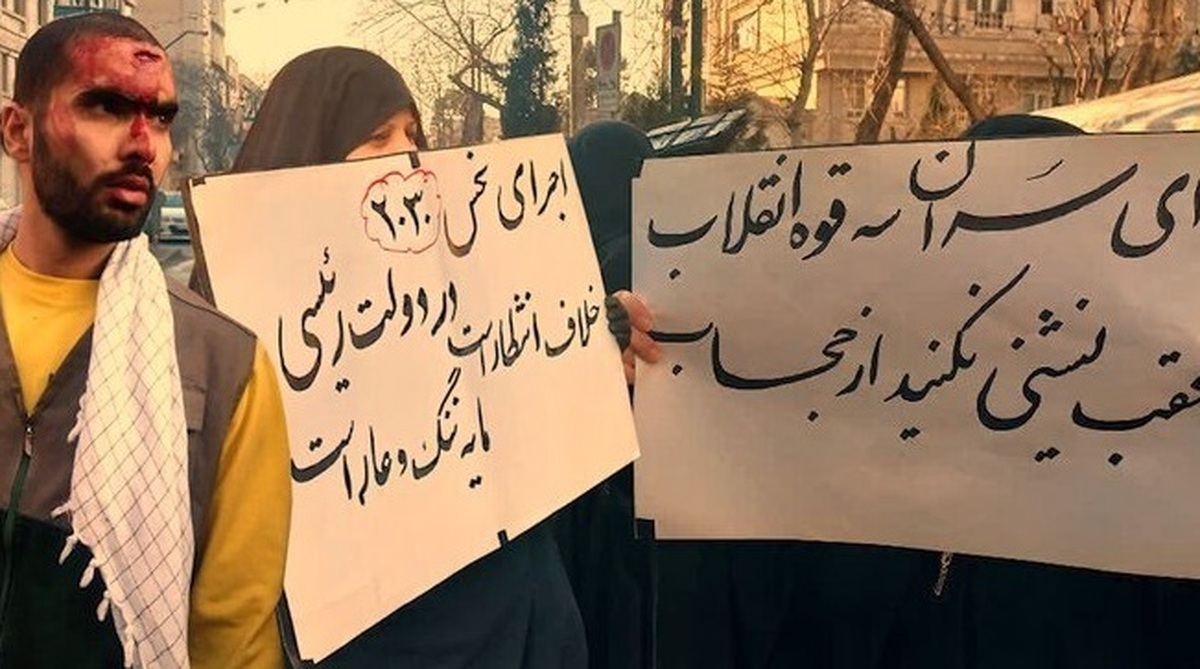 اجرای نحس
۲۰۳۰
در دولت رئیسی
خلاف انتظار است
مایه ننگ و عار است
ای سران سه قوه انقلاب
عقب نشینی نکنید از حجاب